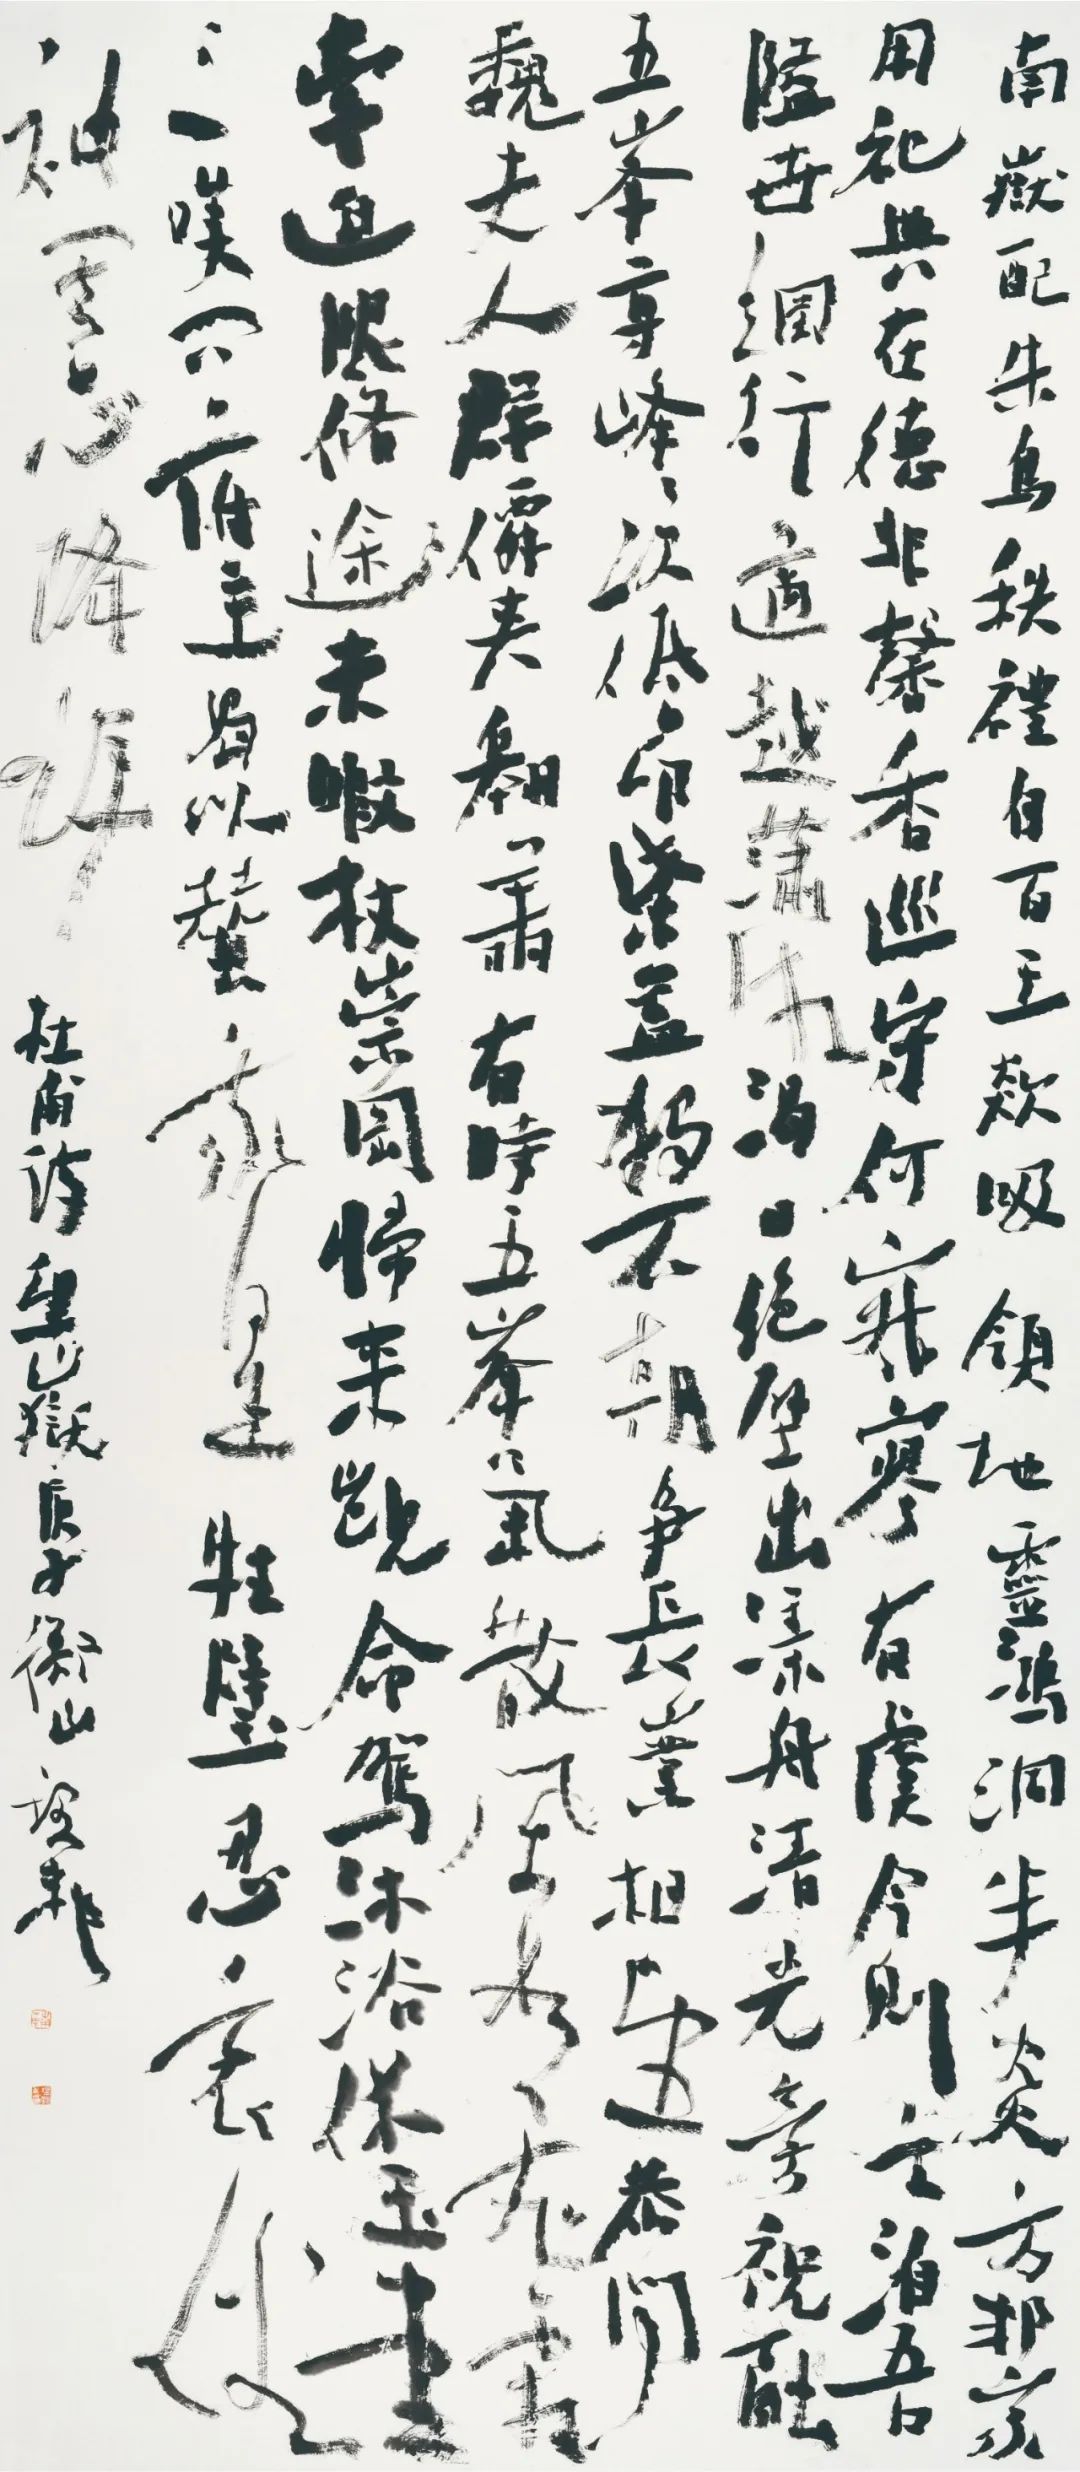 南嶽配朱鳥秩禮自百王欻吸領地靈鴻洞半炎方邦家
用祀典在德非馨香巡守何寂寥有虞今則亡洎吾
隘世網行邁越瀟湘渴日絕壁出漾舟清光旁祝融
五峯尊峰峰次低昂紫蓋獨不朝爭長嶪相望恭聞
魏夫人群僊夾翱翔有時五峯氣散風如飛霜
牽迫限脩途未暇杖崇岡歸來覬命駕沐浴休玉堂
三嘆問府主曷以贊我皇牲璧忍衰俗
神其思降祥 杜甫詩望嶽庚子衡山